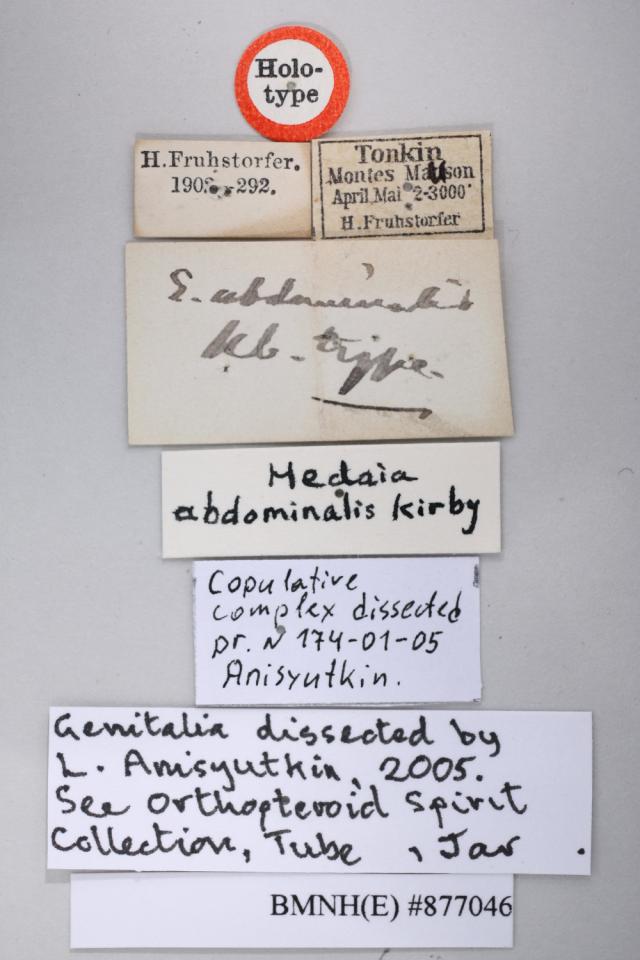 Holo-
type
H. Fruhstorfer.
190 -292.
Tonkin
Montes Mauson
April, Mai 2-3000'
H. Fruhstorfer
E. abdominalis
Kb. type.
Hedaia
abdominalis Kirby
Copulative
complex dissected
pr. N 174-01-05
Anisyutkin.
Genitalia dissected by
L. Anisyutkin, 2005.
See Orthopteroid Spirit
Collection, Tube , Jar .
BMNH(E) #877046